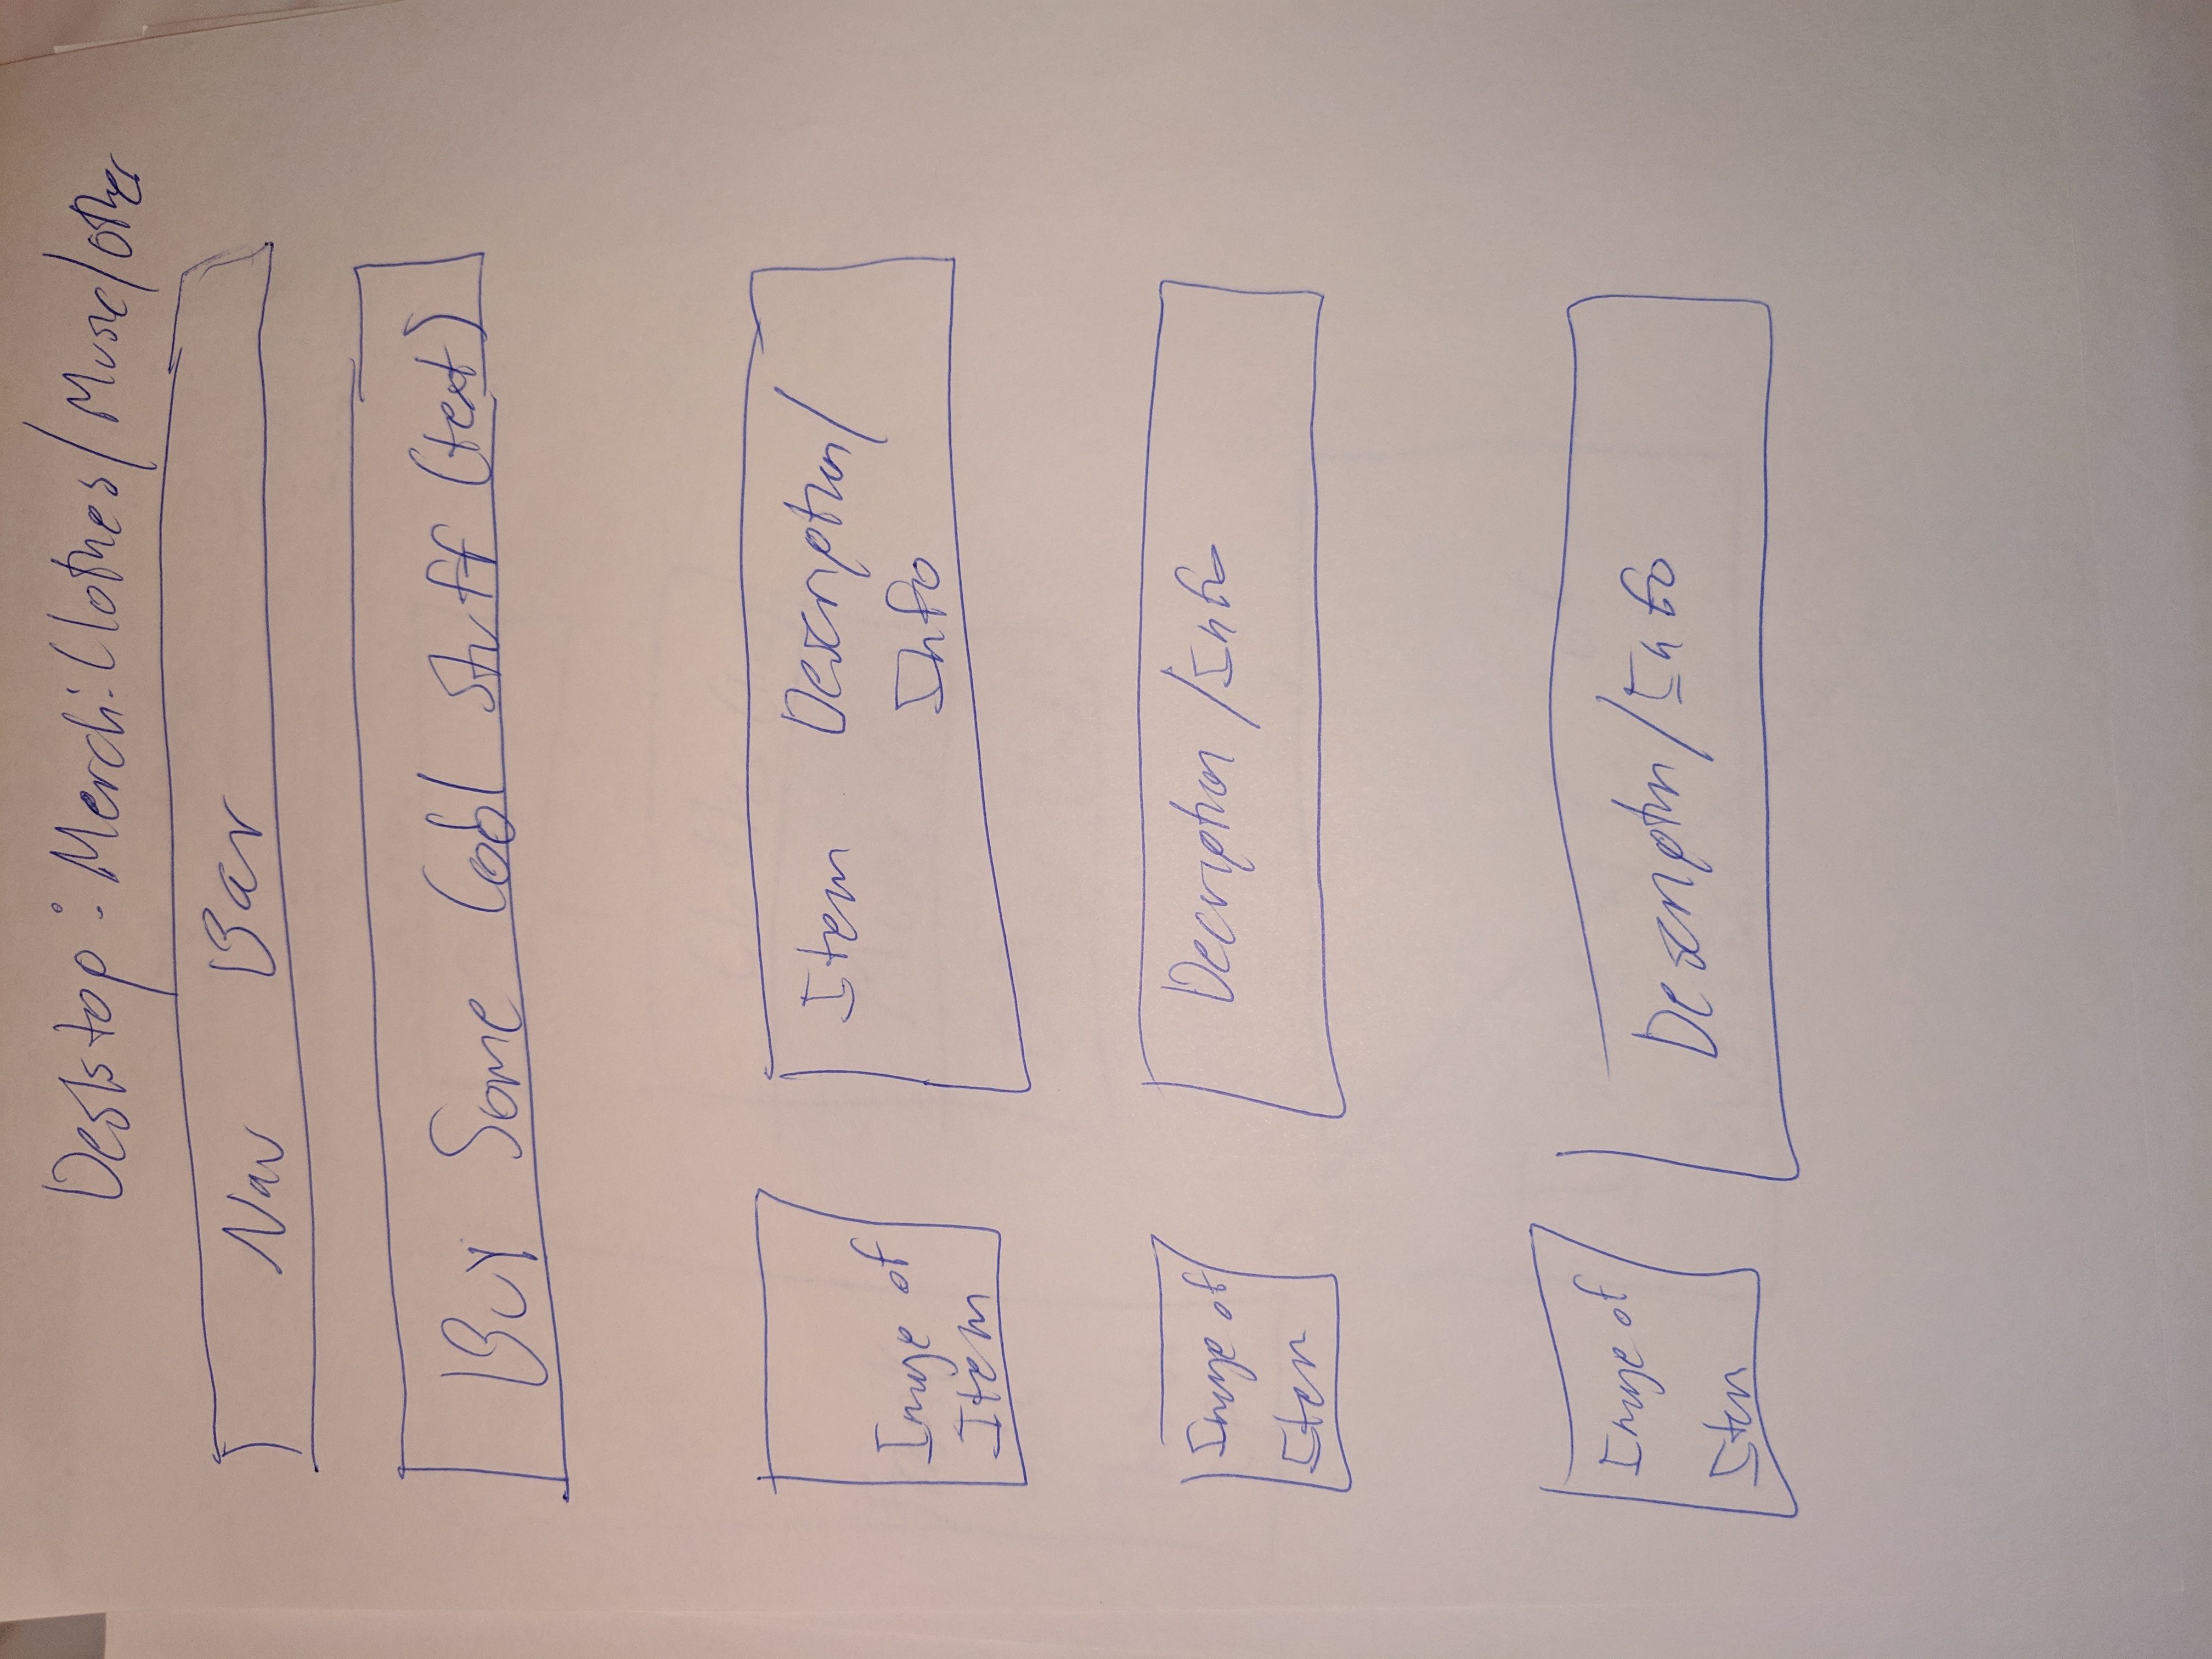 Desktop: Merch: Clothes/Music/other
Nav Bar
Buy Some Cool Stuff (text)
Image of
Item
Item Description/
Info
Image of
Item
Decription/Info
Image of
Item
Description/Info